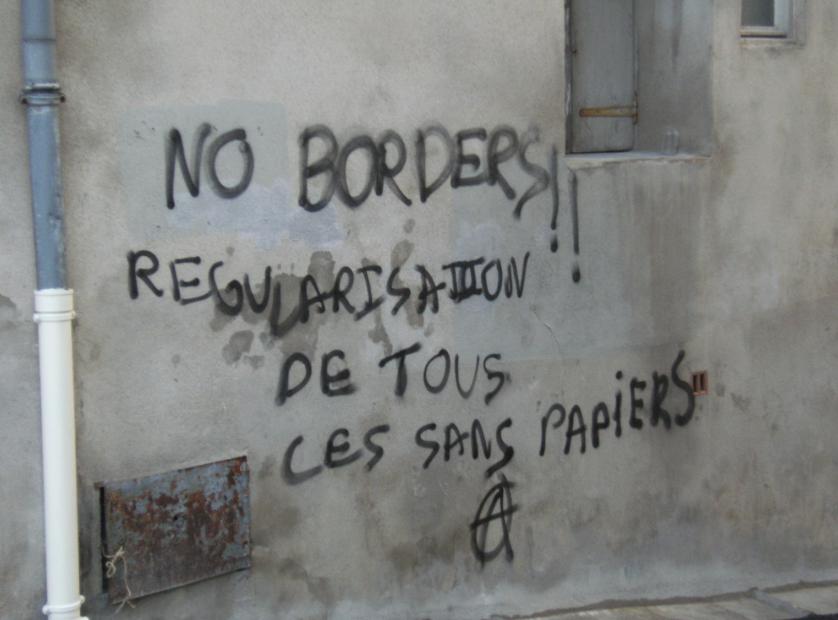 NO BORDERS!!
REGULARISATION
DE TOUS
LES SANS PAPIERS